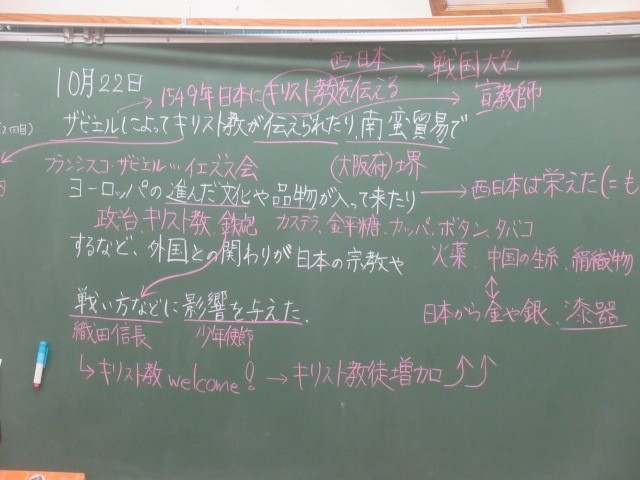 西日本→戦国大名
10月22日
→1549年日本にキリスト教を伝える→宣教師
2回目)
ザビエルによってキリスト教が伝えられたり、南蛮貿易で
フランシスコ・ザビエル…イエズス会 (大阪府)堺
ヨーロッパの進んだ文化や品物が入って来たり→西日本は栄えた(=も
政治、キリスト教 鉄砲 カステラ、金平糖、カッパ、ボタン、タバコ
するなど、外国との関わりが日本の宗教や 火薬、中国の生糸、絹織物
戦い方などに影響を与えた. 日本から金や銀、漆器
織田信長 少年使節
↳キリスト教welcome!→キリスト教徒増加↑↑